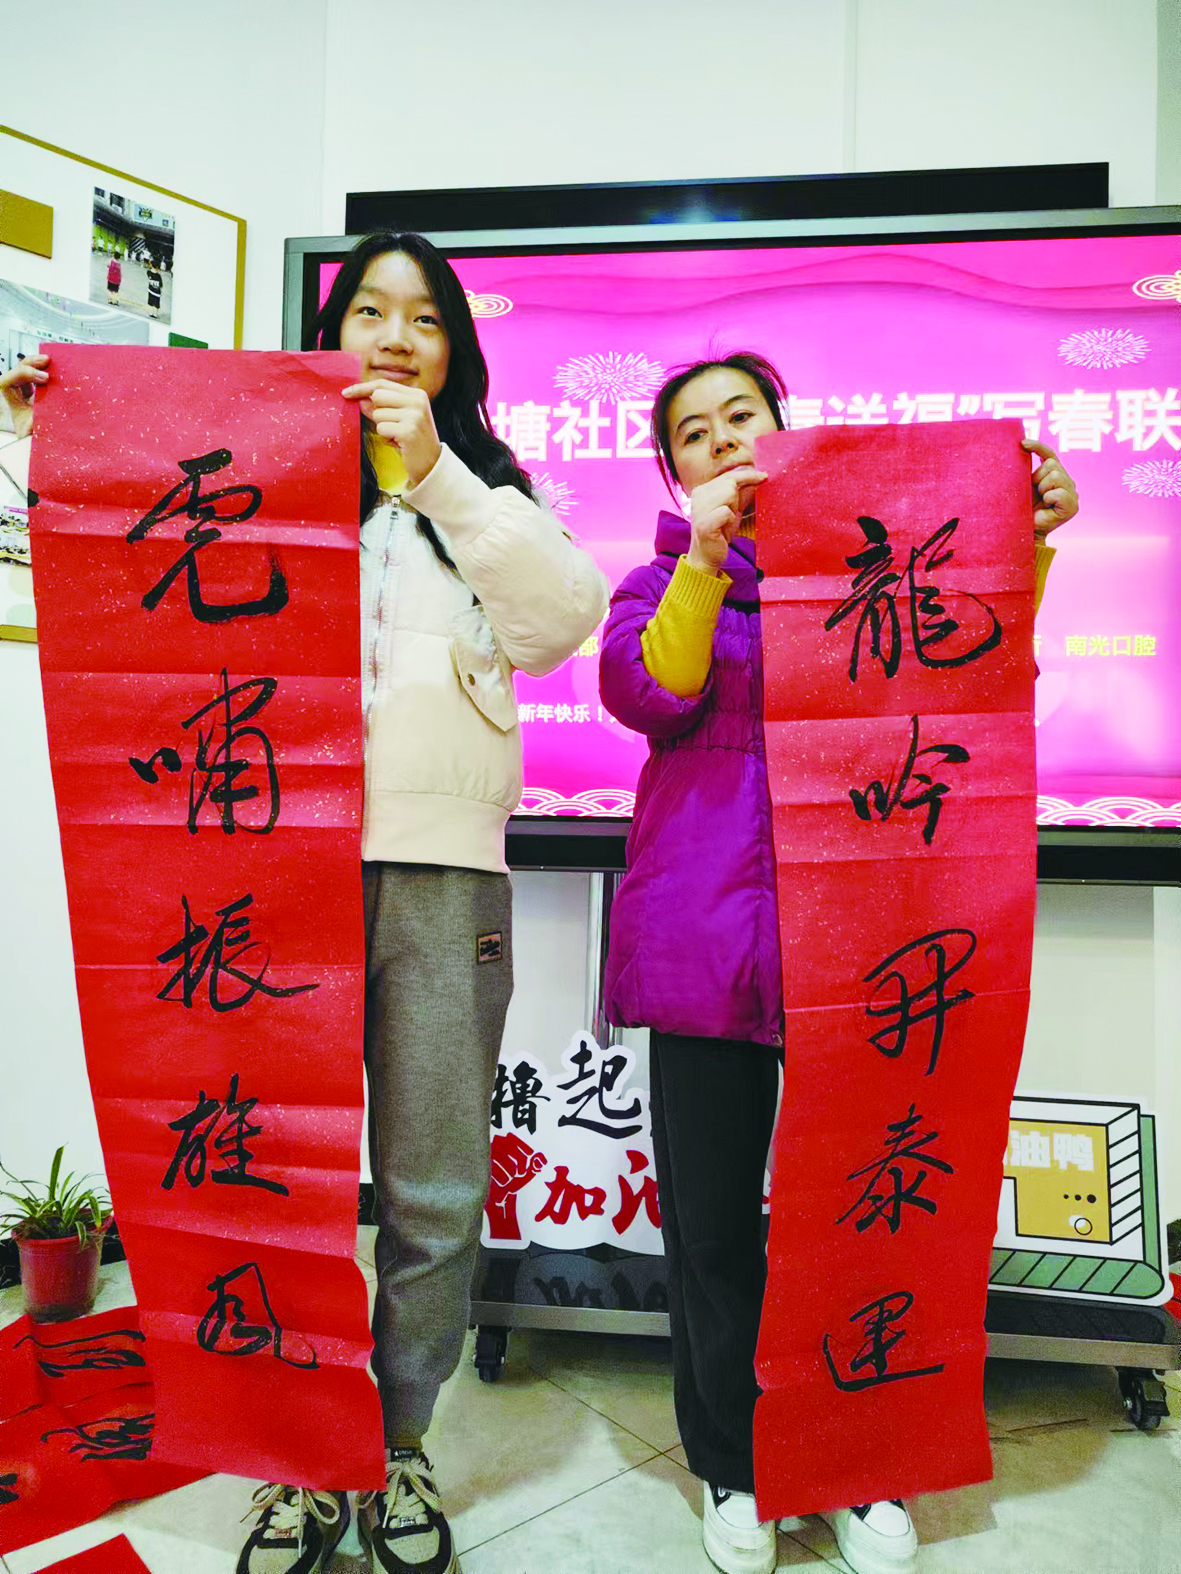 塘社区 送福”写春联
南光口腔
新年快乐！
虎嘯振雄風
龍吟開泰運
撸起
加油
油鸭